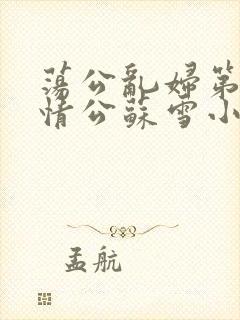 蕩公亂婦第
情公蘇雪小
孟航